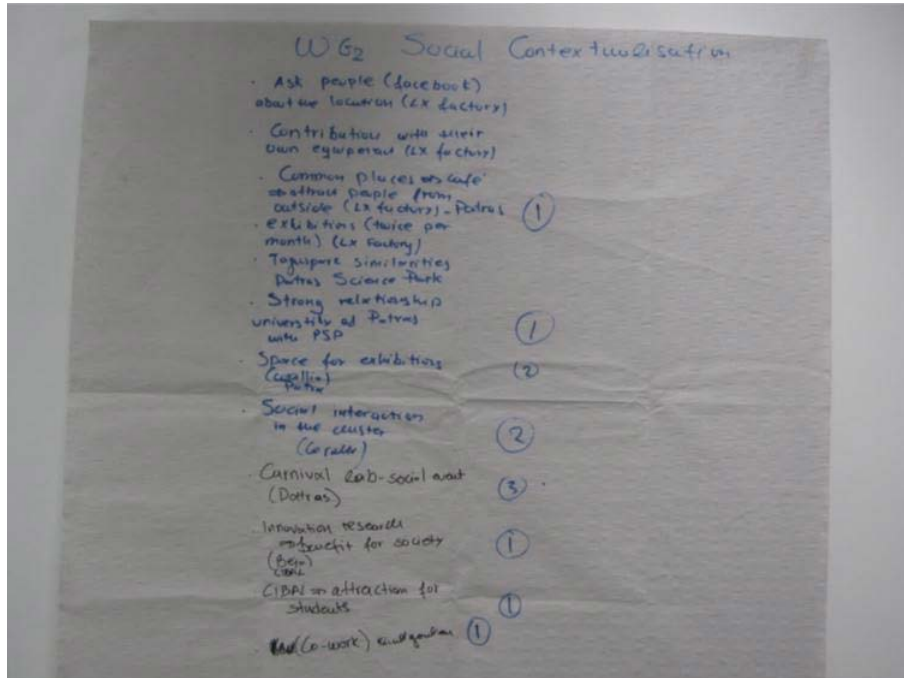 WG2 Social Contextualisation
· Ask people (facebook)
about the location (LX factory)
· Contribution with their
own equipment (LX factory)
· Common places as café
attract people from
outside (LX factory) - Patras ①
· exhibitions (twice per
month) (LX Factory)
· similarities
Patras Science Park
· Strong relationship
university of Patras
with PSP ①
Space for exhibitions ②
· Social interaction
in the cluster
②
· Carnival lab-social event
③
· Innovation research
⇒ benefit for society ①
CIBAL
CIBAL ⇒ attraction for
students ①
· (Co-work) ①